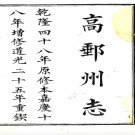 高郵州志
乾隆四十八年原修本嘉慶十
八年增修道光二十五年重